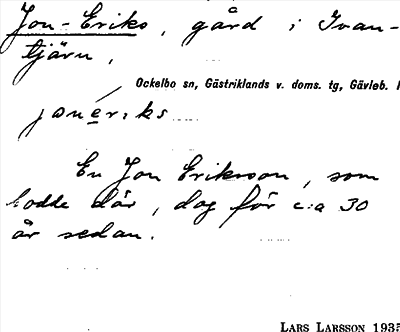 Jon-Eriks, gård i Svan-
tjärn,
Ockelbo sn, Gästriklands v. doms. tg, Gävleb. l
jo̱neriks
En Jon Eriksson, som
bodde där, dog för c:a 30
år sedan.
LARS LARSSON 1935